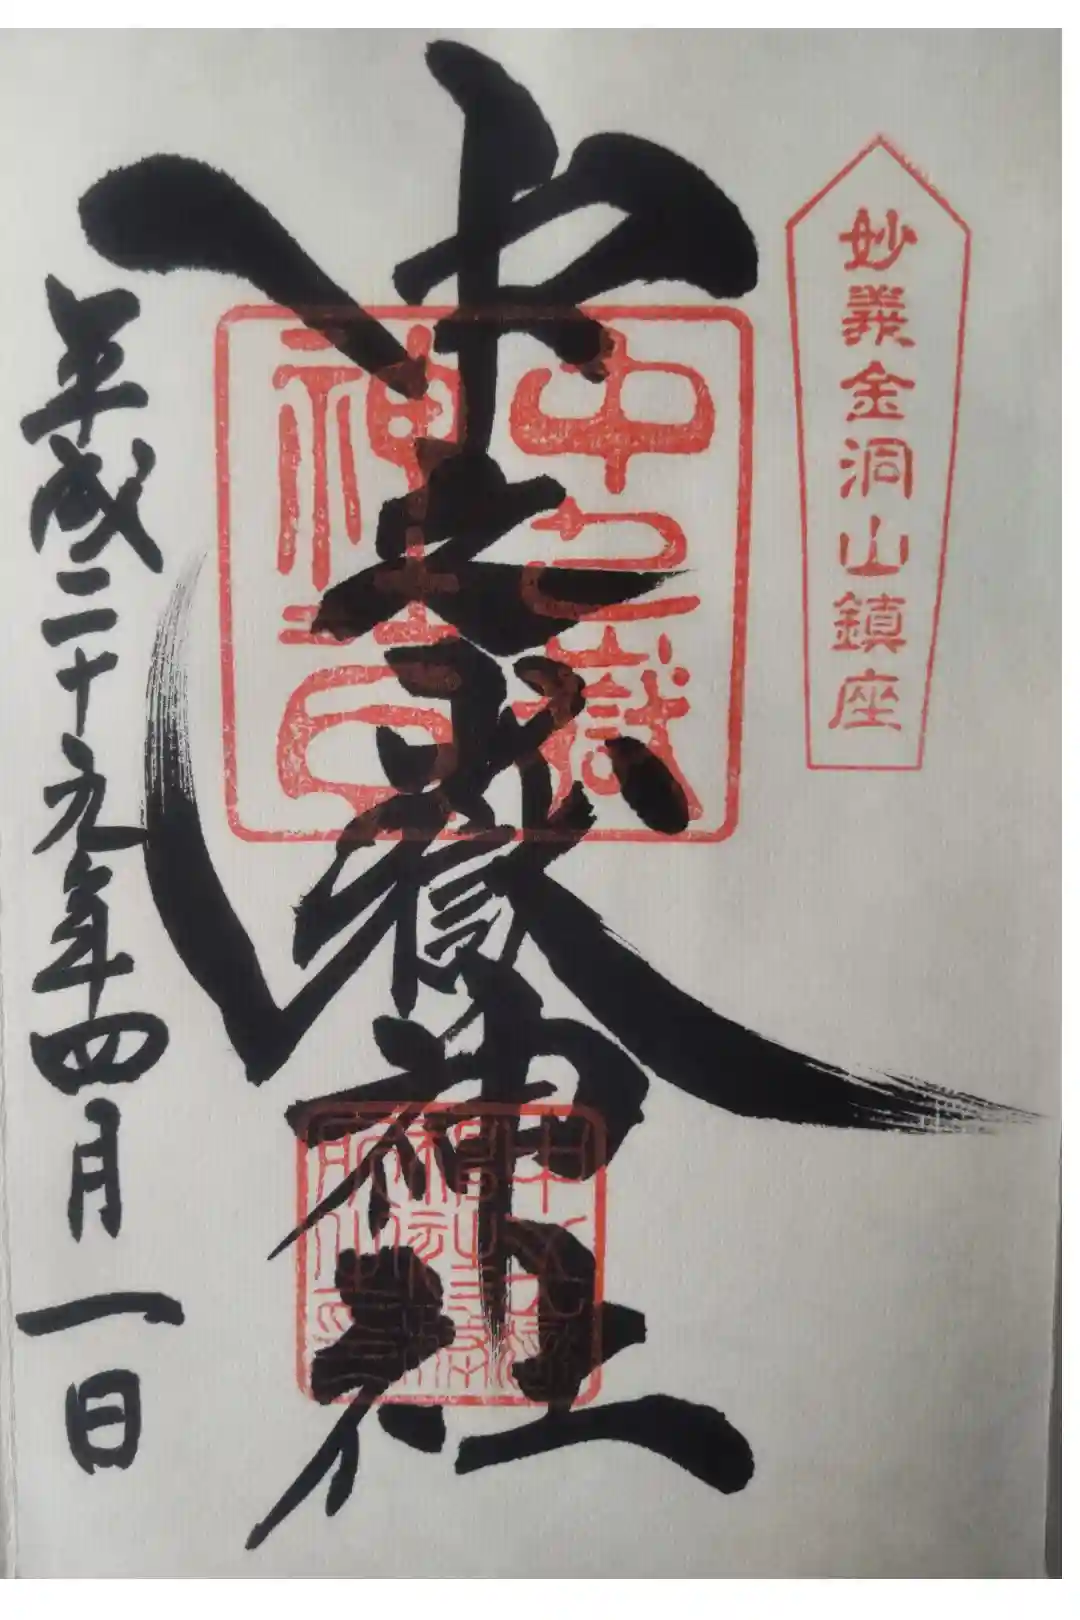 妙義金洞山鎮座
中之嶽神社
中之嶽
神社
平成二十九年四月一日